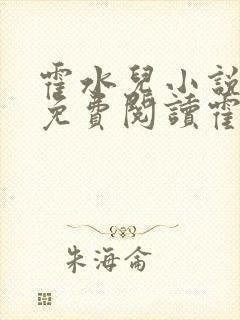 霍水兒小說
免費閱讀霍
朱海侖